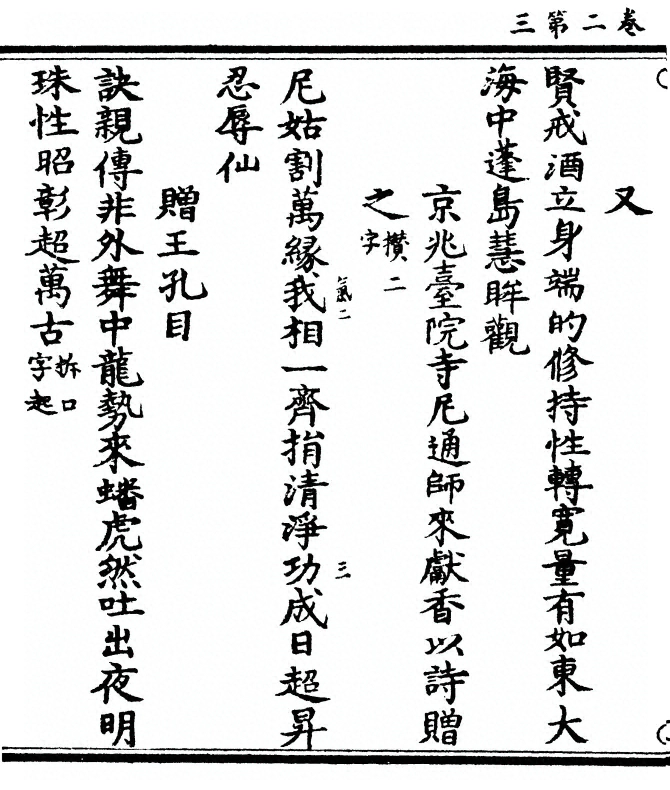 三第二卷
又
賢戒酒立身端的修持性轉寬量有如東大
海中蓬島慧眸觀
京兆臺院寺尼通師來獻香以詩贈
之攢二字
尼姑割萬緣我相一齊捐清淨功成日超昇
氣二
三
忍辱仙
贈王孔目
訣親傳非外舞中龍勢來蟠虎然吐出夜明
珠性昭彰超萬古拆口字起